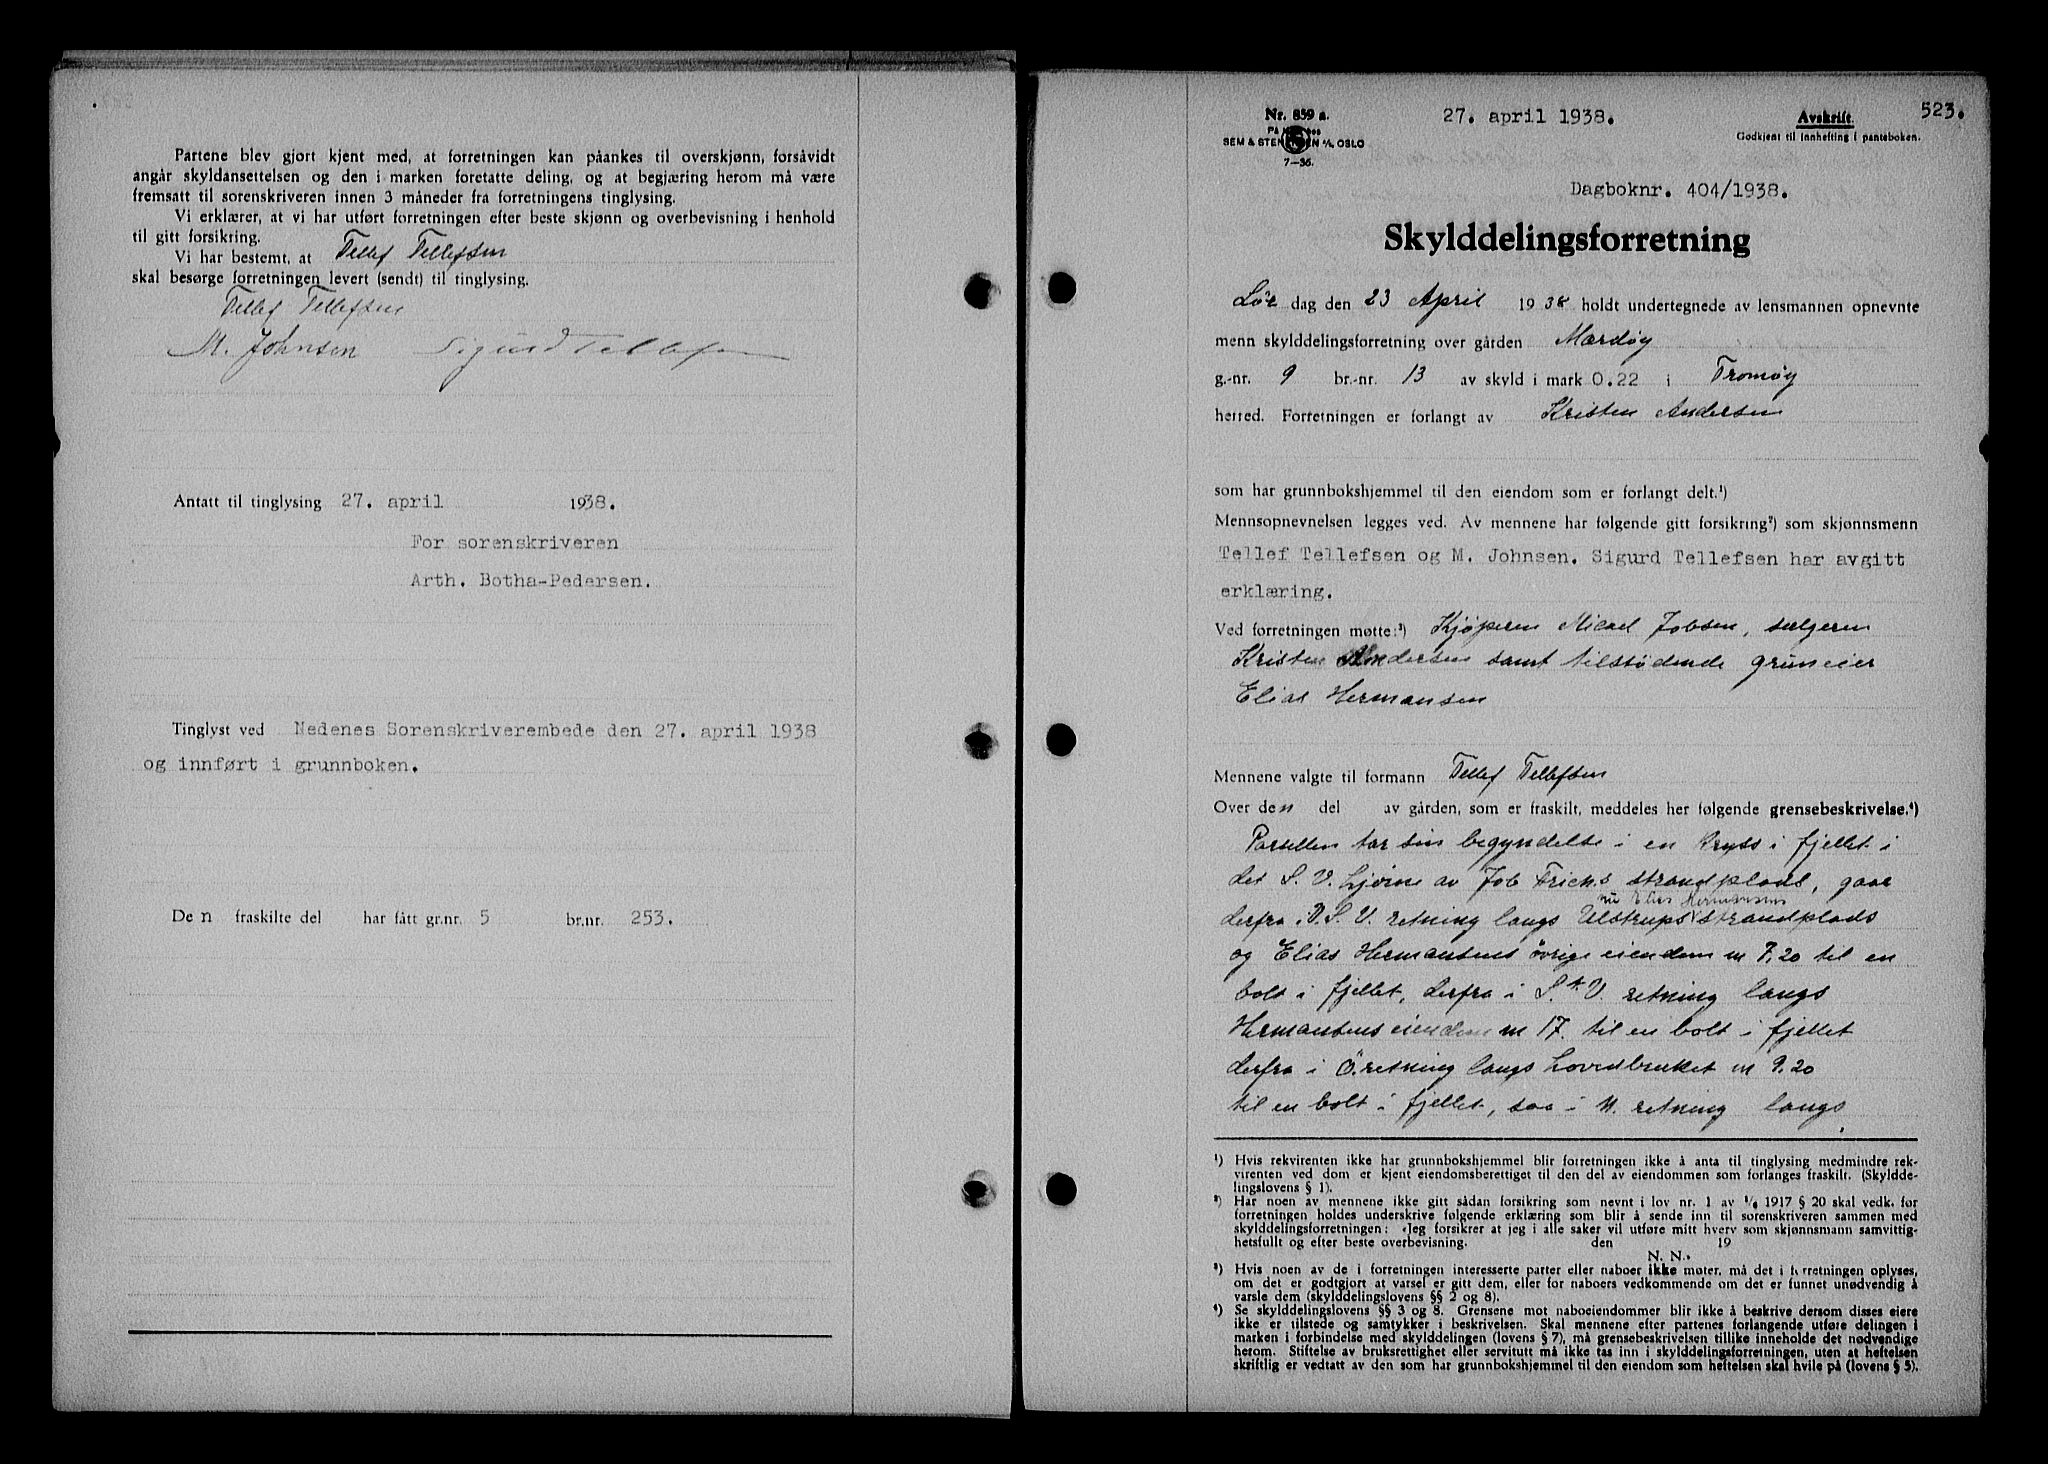 Partene blev gjort kjent med, at forretningen kan påankes til overskjønn, forsåvidt
angår skyldansettelsen og den i marken foretatte deling, og at begjæring herom må være
fremsatt til sorenskriveren innen 3 måneder fra forretningens tinglysing.
Vi erklærer, at vi har utført forretningen efter beste skjønn og overbevisning i henhold
til gitt forsikring.
Vi har bestemt, at Tellef Tellefsen
skal besørge forretningen levert (sendt) til tinglysing.
Tellef Tellefsen
M. Johnsen Sigurd Tellefsen
Antatt til tinglysing 27. april 1938.
For sorenskriveren
Arth. Botha-Pedersen.
Tinglyst ved Nedenes Sorenskriverembede den 27. april 1938
og innført i grunnboken.
Den fraskilte del har fått gr.nr. 5 br.nr. 253.
Nr. 859 a. 27. april 1938. Avskrift. 523.
Godkjent til innhefting i panteboken.
SEM & STENERSEN A/S, OSLO
7-36.
Dagboknr. 404/1938.
Skylddelingsforretning
Lør dag den 23 April 1938 holdt undertegnede av lensmannen opnevnte
menn skylddelingsforretning over gården Mærdøy
g.-nr. 9 br.-nr. 13 av skyld i mark 0.22 i Tromøy
herred. Forretningen er forlangt av Kristen Andersen
som har grunnbokshjemmel til den eiendom som er forlangt delt.¹)
Mennsopnevnelsen legges ved. Av mennene har følgende gitt forsikring²) som skjønnsmenn
Tellef Tellefsen og M. Johnsen. Sigurd Tellefsen har avgitt
erklæring.
Ved forretningen møtte:³) Kjøperen Micael Jobsen, sælgeren
Kristen Andersen samt tilstødende gruneier
Elias Hermansen
Mennene valgte til formann Tellef Tellefsen
Over den del av gården, som er fraskilt, meddeles her følgende grensebeskrivelse.⁴)
Parsellen tar sin begyndelse i en kryss i fjellet i
det S. V. hjørne av Job Frichs strandplads, gaar
nu Elias Hermansens
derfra i V. S. V. retning langs Ulstrups strandplads
og Elias Hermansens övrige eiendom m 7,20 til en
bolt i fjellet, derfra i S. t. V. retning langs
Hermansens eiendom m 17. til en bolt i fjellet
derfra i Ö. retning langs hovedbruket m 9.20
til en bolt i fjellet, saa i N. retning langs
¹) Hvis rekvirenten ikke har grunnbokshjemmel blir forretningen ikke å anta til tinglysing medmindre rek-
virenten ved dom er kjent eiendomsberettiget til den del av eiendommen som forlanges fraskilt. (Skyldde-
lingslovens § 1).
²) Har noen av mennene ikke gitt sådan forsikring som nevnt i lov nr. 1 av 1/6 1917 § 20 skal vedk. før
forretningen holdes underskrive følgende erklæring som blir å sende inn til sorenskriveren sammen med
skylddelingsforretningen: «Jeg forsikrer at jeg i alle saker vil utføre mitt hverv som skjønnsmann samvittig-
hetsfullt og efter beste overbevisning. den 19
N. N.»
³) Hvis noen av de i forretningen interesserte parter eller naboer ikke møter, må det i forretningen oplyses,
om det er godtgjort at varsel er gitt dem, eller for naboers vedkommende om det er funnet unødvendig å
varsle dem (skylddelingslovens §§ 2 og 8).
⁴) Se skylddelingslovens §§ 3 og 8. Grensene mot naboeiendommer blir ikke å beskrive dersom disses eiere
ikke er tilstede og samtykker i beskrivelsen. Skal mennene efter partenes forlangende utføre delingen i
marken i forbindelse med skylddelingen (lovens § 7), må grensebeskrivelsen tillike inneholde det nødvendige
herom. Stiftelse av bruksrettighet eller servitutt må ikke tas inn i skylddelingsforretningen, uten at heftelsen
skriftlig er vedtatt av den som har grunnbokshjemmel til den eiendom som heftelsen skal hvile på (lovens § 5).